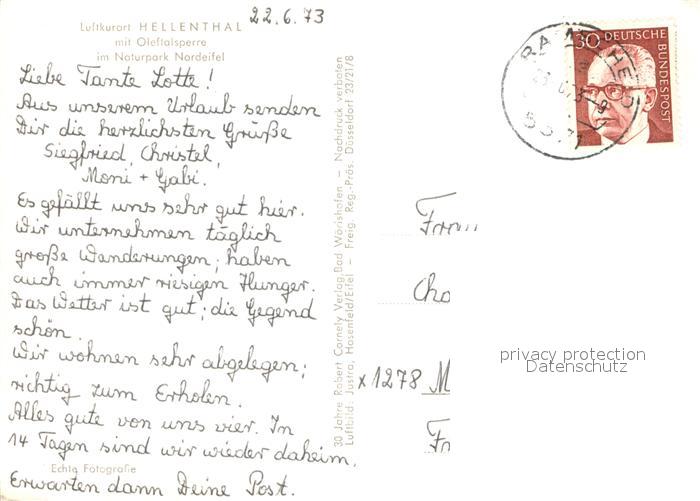 22.6.73
Luftkurort HELLENTHAL
mit Oleftalsperre
im Naturpark Nordeifel
Liebe Tante Lotte!
Aus unserem Urlaub senden
Dir die herzlichsten Grüße
Siegfried, Christel,
Moni + Gabi.
Es gefällt uns sehr gut hier.
Wir unternehmen täglich
große Wanderungen; haben
auch immer riesigen Hunger.
Das Wetter ist gut; die Gegend
schön.
Wir wohnen sehr abgelegen;
richtig zum Erholen.
Alles gute von uns vier. In
14 Tagen sind wir wieder daheim.
Echte Fotografie
Erwarten dann Deine Post.
30 Jahre Robert Cornely Verlag, Bad Wörishofen – Nachdruck verboten
Luftbild: Justra, Hasenfeld/Eifel – Freig. Reg.-Präs. Düsseldorf 23/21/8
30 DEUTSCHE
BUNDESPOST
x 1278 M
privacy protection
Datenschutz